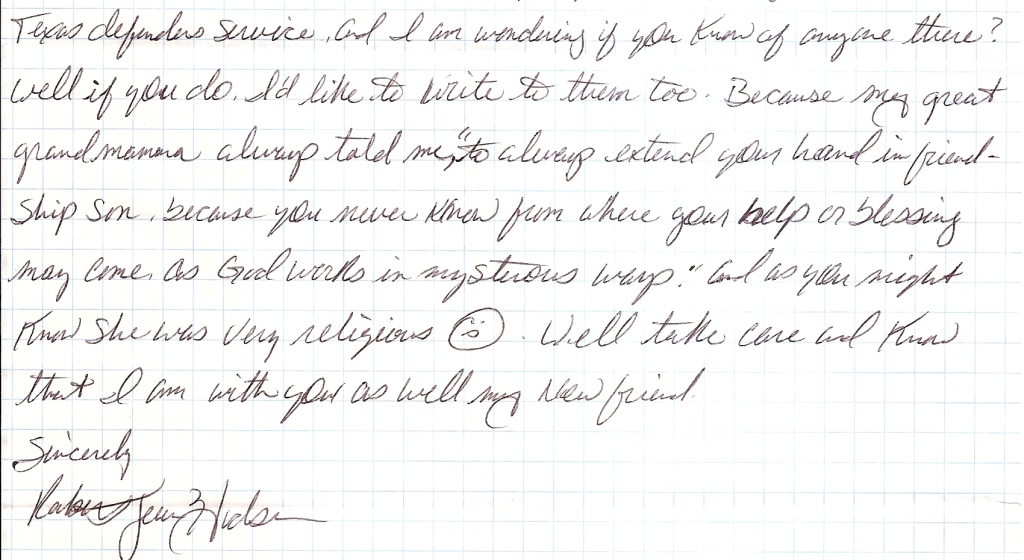 Texas defenders service, and I am wondering if you know of anyone there?
Well if you do, I'd like to write to them too. Because my great
grandmamma always told me, "to always extend your hand in friend-
ship son, because you never know from where your help or blessing
may come, as God works in mysterous ways." And as you might
know she was very religious ☺. Well take care and know
that I am with you as well my new friend.
Sincerely